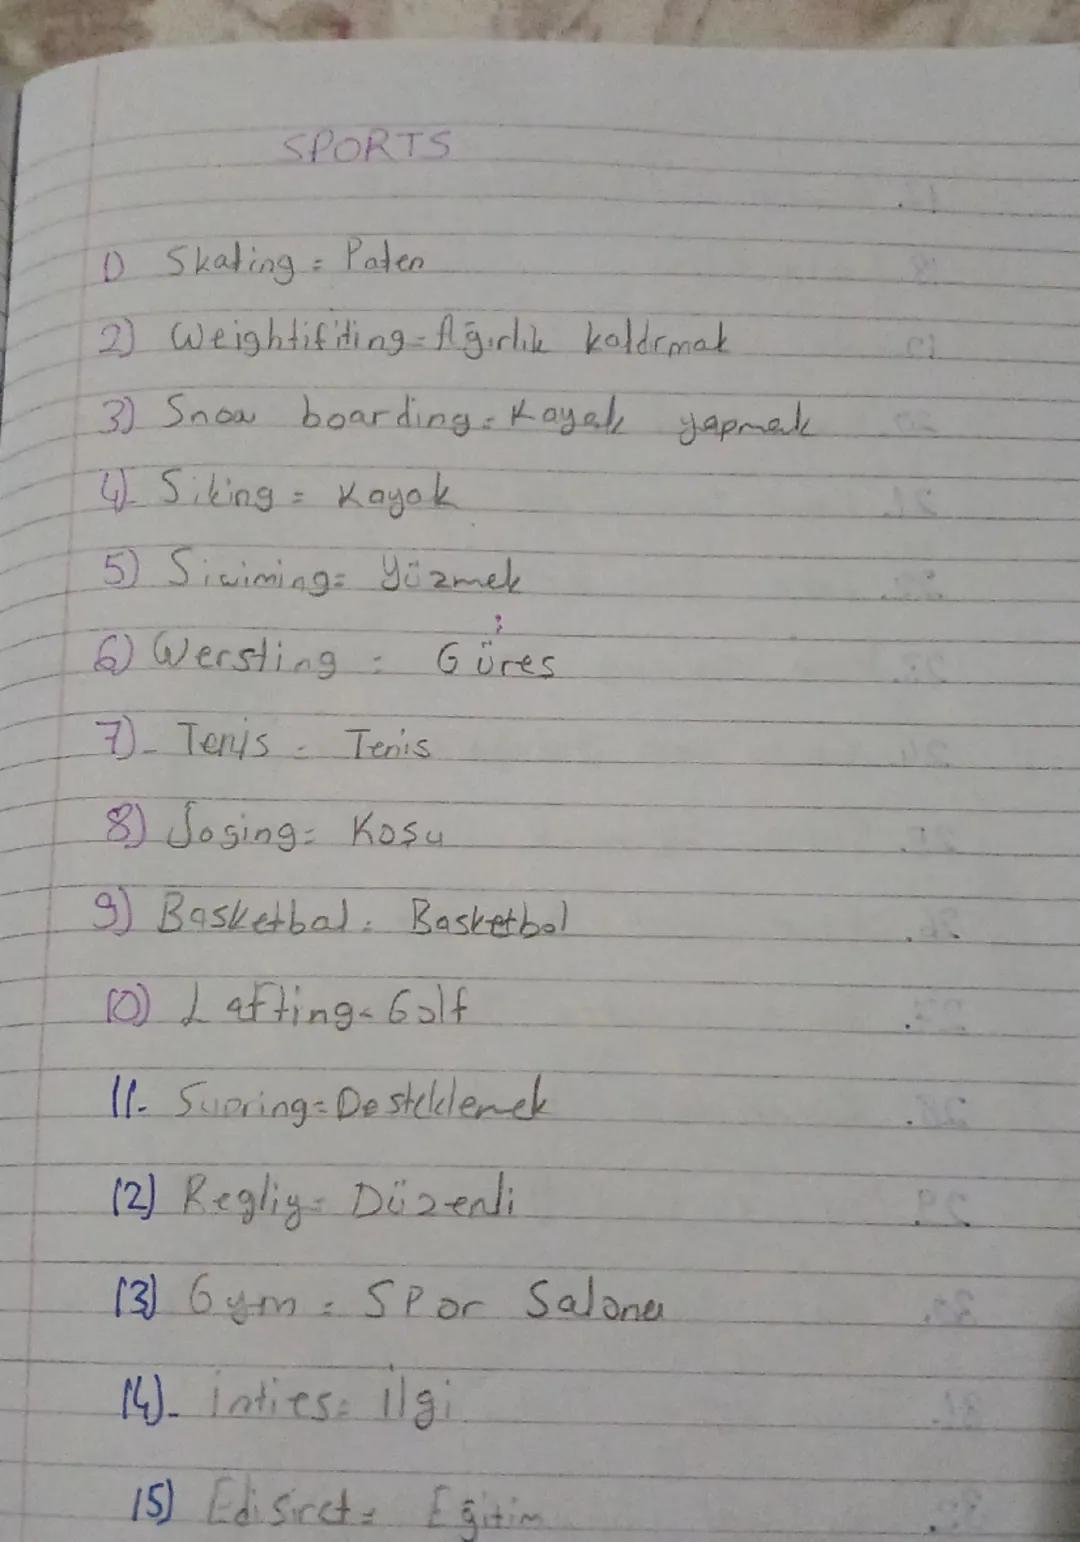 SPORTS
1) Skating = Paten
2) Weightifiting = Ağırlık kaldırmak
3) Snow boarding = Kayak yapmak
4)- Siking = Kayak
5) Siwiming = Yüzmek
6) Wersting = Güreş
7)- Tenis = Tenis
8) Joging = Koşu
9) Basketbal = Basketbol
10) Lafting = Golf
11- Supring = Desteklemek
12) Regliy = Düzenli
13) Gym = SPor Salonu
14)- inties = ilgi
15) Edisiret = Eğitim